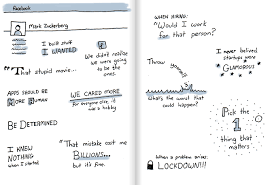 Facebook
Mark Zuckerberg
I built stuff
I WANTED
We didn't realise
we were going
to be the
ones.
"That stupid movie...
APPS SHOULD BE
MORE HUMAN
WE CARED MORE
For everyone else, it
was a hobby
BE DETERMINED
I KNEW
NOTHING
when I started
"That mistake cost me
BILLIONS...
but it's ok.
WHEN HIRING:
"Would I work
for that person?
Throw
yourself
What's the worst that
could happen?
I never believed
startups were
GLAMOROUS
Pick the
1
thing
that matters
When a problem arises:
LOCKDOWN!!!